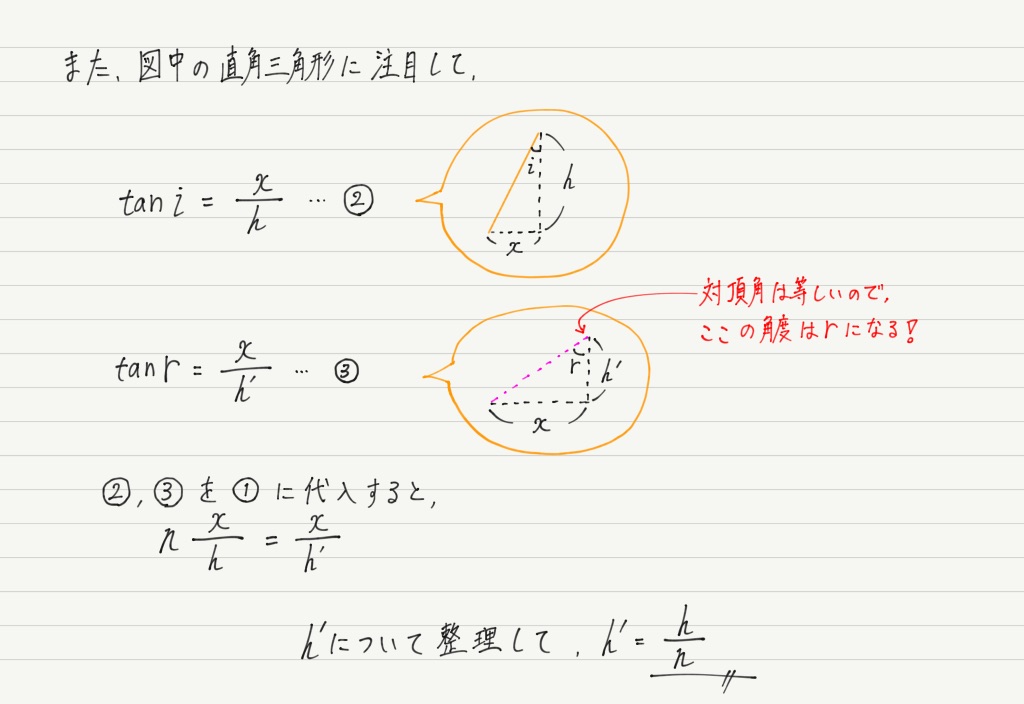 また、図中の直角三角形に注目して、
tan i = x/h … ②
i
h
x
対頂角は等しいので、
ここの角度はrになる!
tan r = x/h′ … ③
r
h′
x
②, ③ を ① に代入すると、
n x/h = x/h′
h′について整理して、h′ = h/n